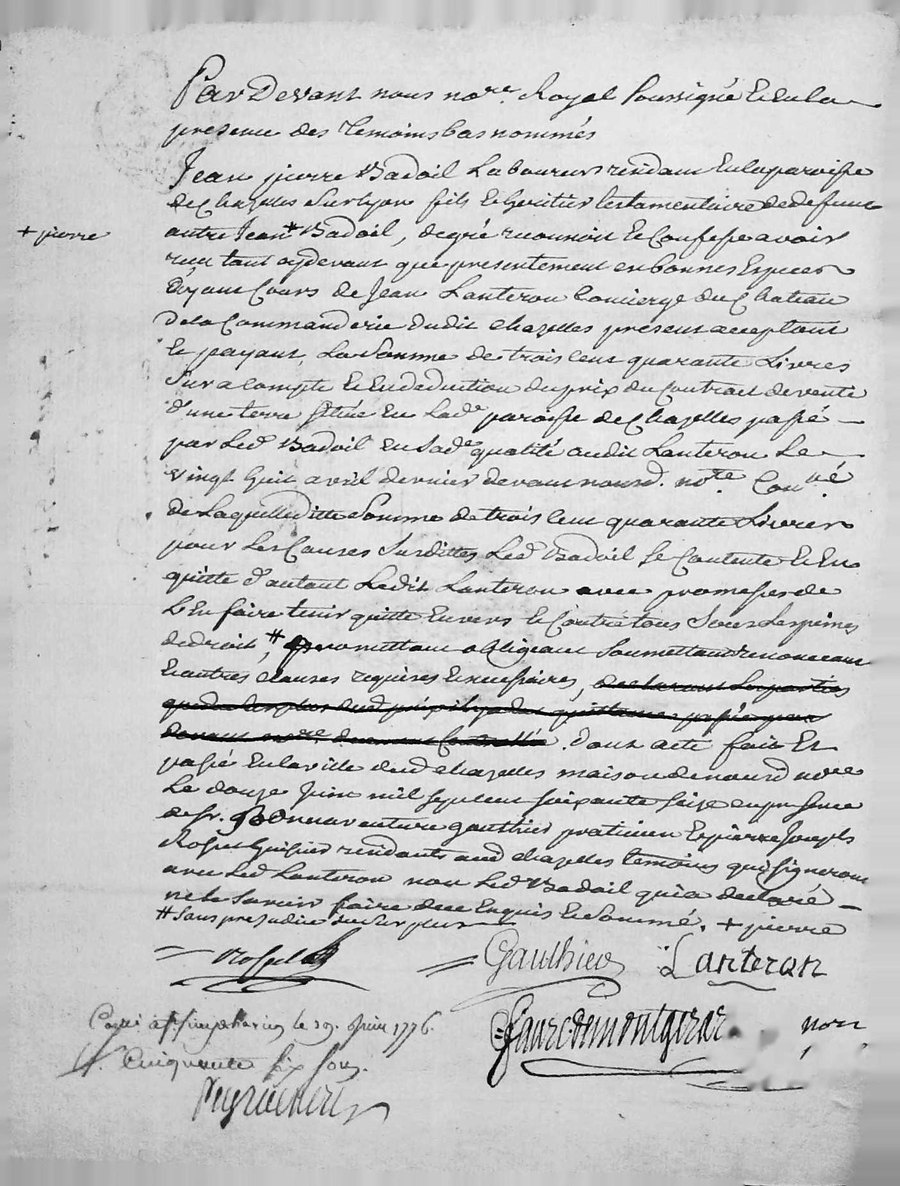 Par Devant nous no.re Royal soussigné Et en la
presence des temoins bas nommés
Jean pierre Badoil Laboureur residant En la paroisse
de Chazelles Sur lyon fils Et heritier testamentaire de defunt
+ pierre
autre Jean + Badoil, de gré reconnoit Et Confesse avoir
recu tant cydevant que presentement en bonnes Especes
Ayant Cours de Jean Lanteron Concierge du Chateau
de la Commanderie dudit chazelles present acceptant
Et payant, La Somme de trois Cent quarante Livres
Sur a compte Et En deduction du prix du Contrat de vente
d'une terre située En Lad.e paroisse de Chazelles passé
par Led. Badoil en Sad.e qualité audit Lanteron Le
vingt huit avril dernier devant nousd. no.re Con.llé
de Laquelle ditte Somme de trois Cent quarante Livres
pour Les Causes Surdittes Led. Badoil Se Contente Et En
quitte d'autant Ledit Lanteron avec promesses de
L'En faire tenir quitte Envers Et Contre tous Sous Les peines
de droit, # promettant obligeant Soumettant renonceant
Et autres clauses requises Et necessaires,
dont acte fait Et
passé En la ville dud. chazelles maison de nousd. no.re
Le douze Juin mil Sept cent soixante Seize en presence
de Sr. Bonnaventure gauthier praticien Et pierre Joseph
residants aud. chazelles temoins qui signeront
avec Led. Lanteron non Led. Badoil qui a declaré
ne le Savoir faire de ce Enquis Et Sommé. + pierre
# Sans prejudice du Surplus
Gauthier Lanteron
faure de montgirar nore
le 19. Juin 1776.
Cinquante six sous.